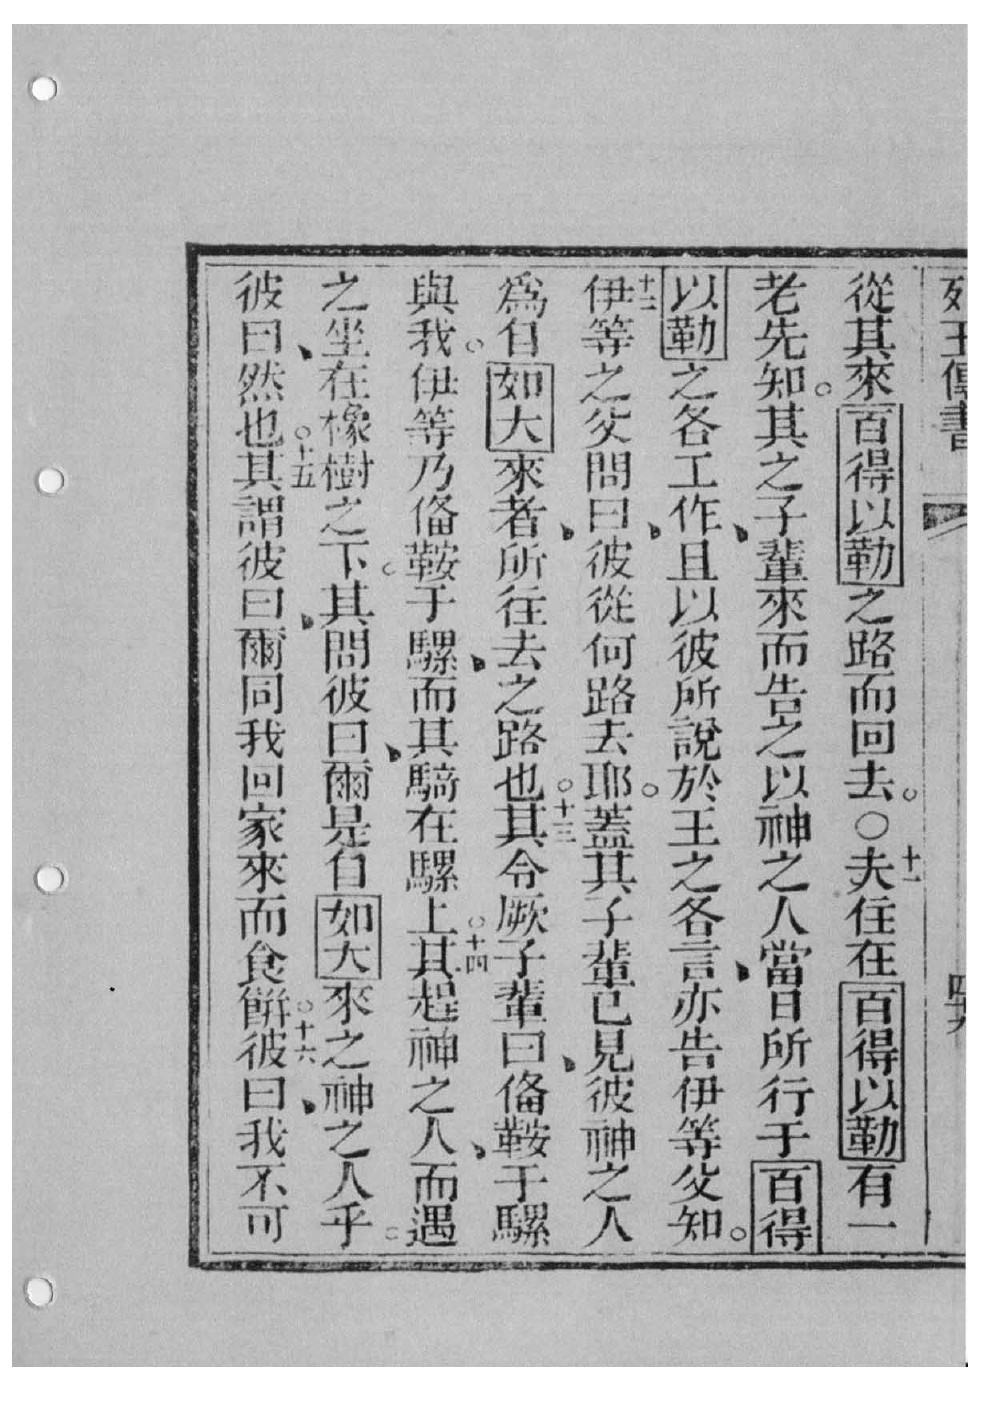 列王傳書
從其來百得以勒之路而回去。〇十一夫住在百得以勒有一
老先知。其之子輩、來而告之以神之人當日所行于百得
以勒之各工作、且以彼所說於王之各言、亦告伊等父知。
十二伊等之父問曰、彼從何路去耶。蓋其子輩已見彼神之人
爲自如大來者、所往去之路也。十三其令厥子輩曰、俻鞍于騾
與我。伊等乃俻鞍于騾、而其騎在騾上。十四其趕神之人、而遇
之坐在橡樹之下。其問彼曰、爾是自如大來之神之人乎。
彼曰、然也。十五其謂彼曰、爾同我回家來而食餅。十六彼曰、我不可